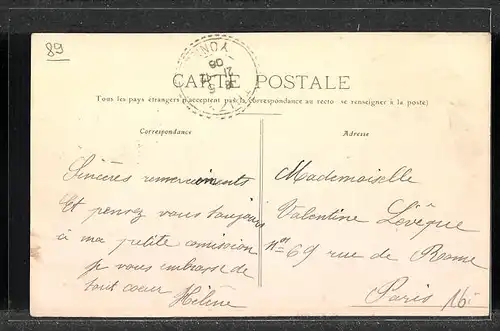 89
YONNE
21 12 06
CARTE POSTALE
Tous les pays étrangers n'acceptent pas la correspondance au recto (se renseigner à la poste)
Correspondance
Adresse
Sincères remerciements
Et pensez vous toujours
à ma petite comission
je vous embrasse de
tout coeur Hélène
Mademoiselle
Valentine Lévêque
69 rue de Rome
Paris
16